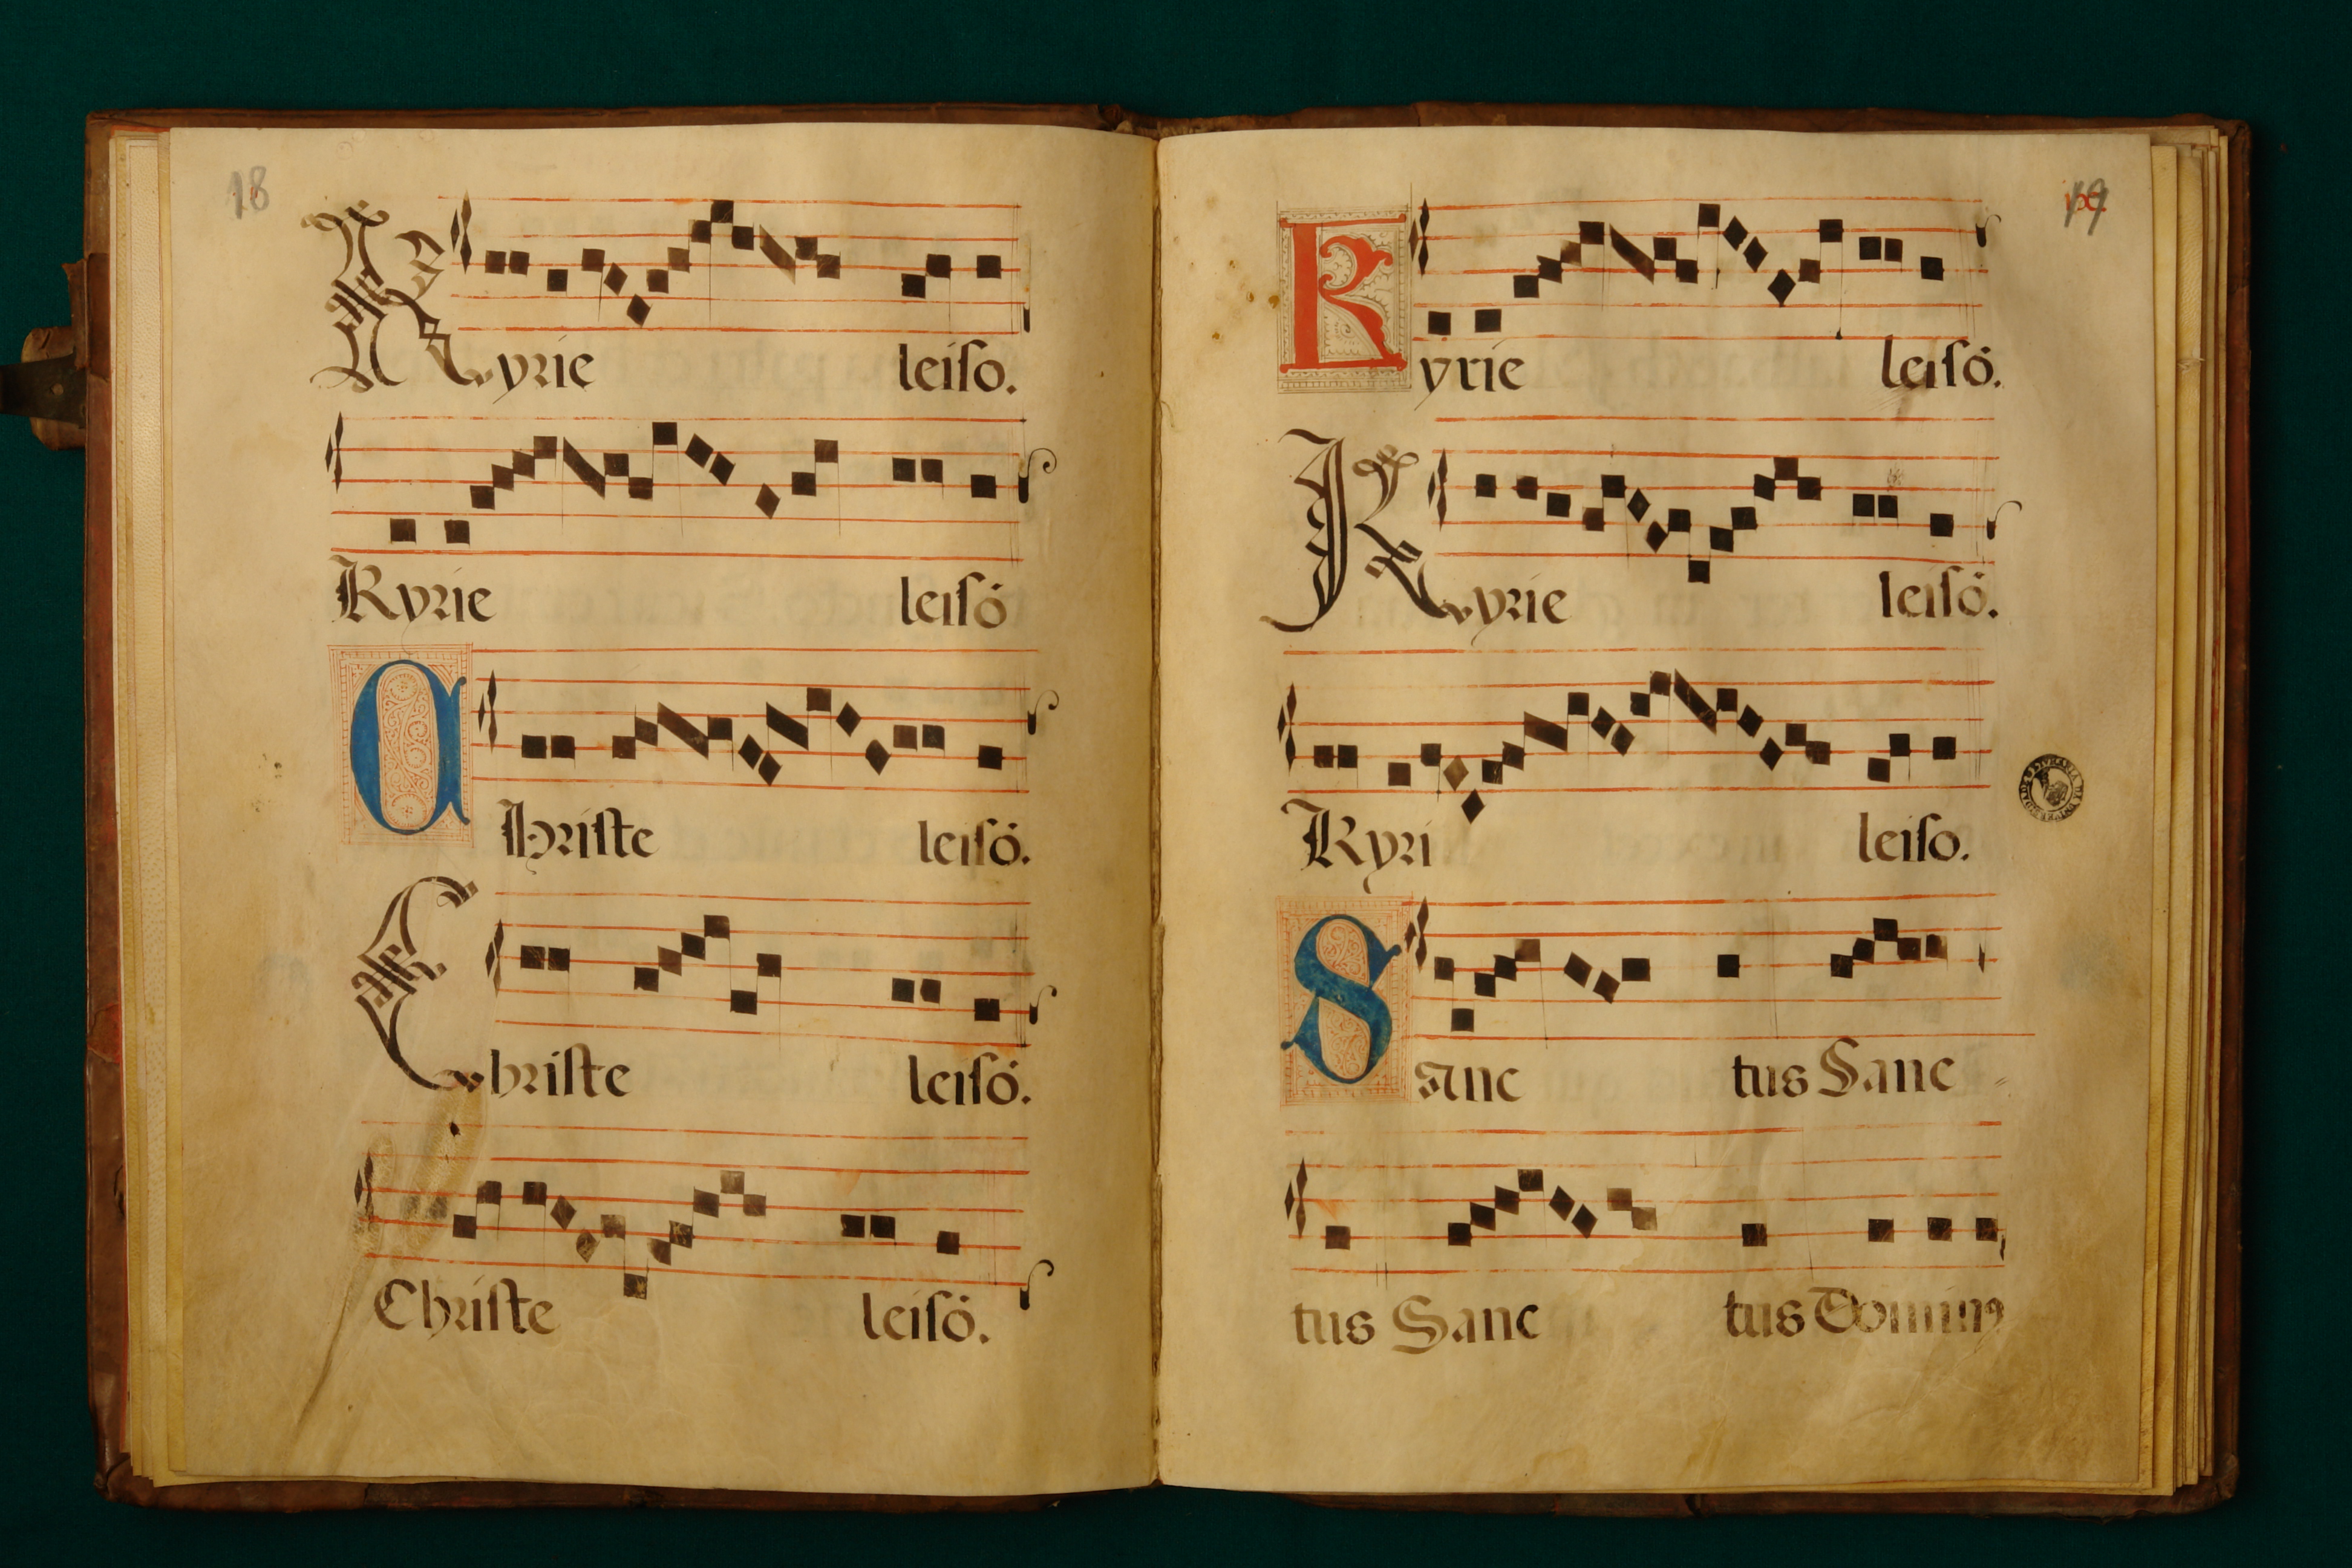 18
Kyrie leiso.
Kyrie leisõ
Christe leisõ.
Christe leisõ.
Christe leisõ.
19
Kyrie leisõ.
Kyrie leisõ.
Kyri leiso.
Sanc tus Sanc
tus Sanc tus Dominꝰ